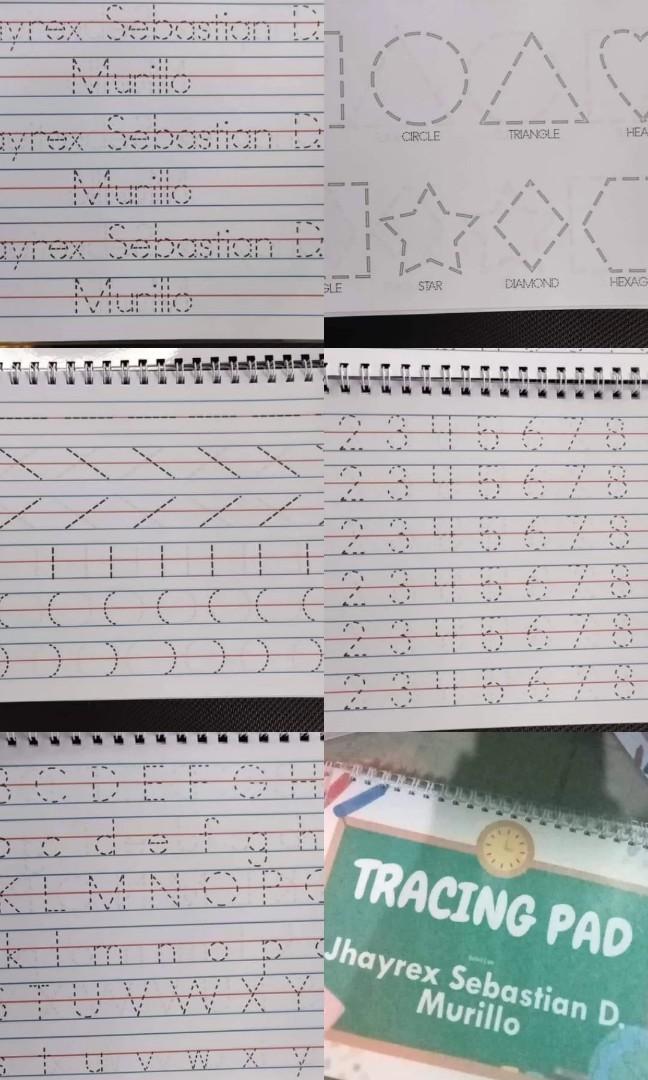 yrex Sebastian D
Murillo
yrex Sebastian D.
Murillo
yrex Sebastian D.
Murillo
CIRCLE TRIANGLE HEA
GLE STAR DIAMOND HEXAG
2 3 4 5 6 7 8
2 3 4 5 6 7 8
2 3 4 5 6 7 8
2 3 4 5 6 7 8
2 3 4 5 6 7 8
2 3 4 5 6 7 8
B C D E F G H
c d e f g h
K L M N O P Q
k l m n o p q
S T U V W X Y
s t u v w x y
TRACING PAD
Jhayrex Sebastian D.
Murillo